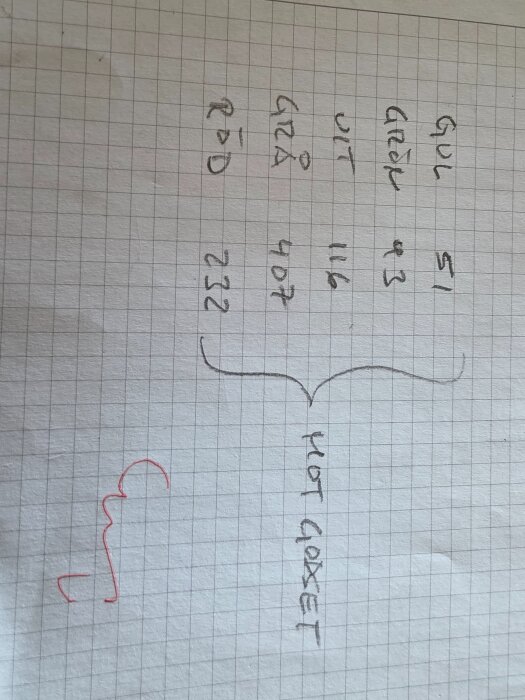 GUL 51
GRÖN
VIT 116
GRÅ 407
RÖD 232
MOT GODSET